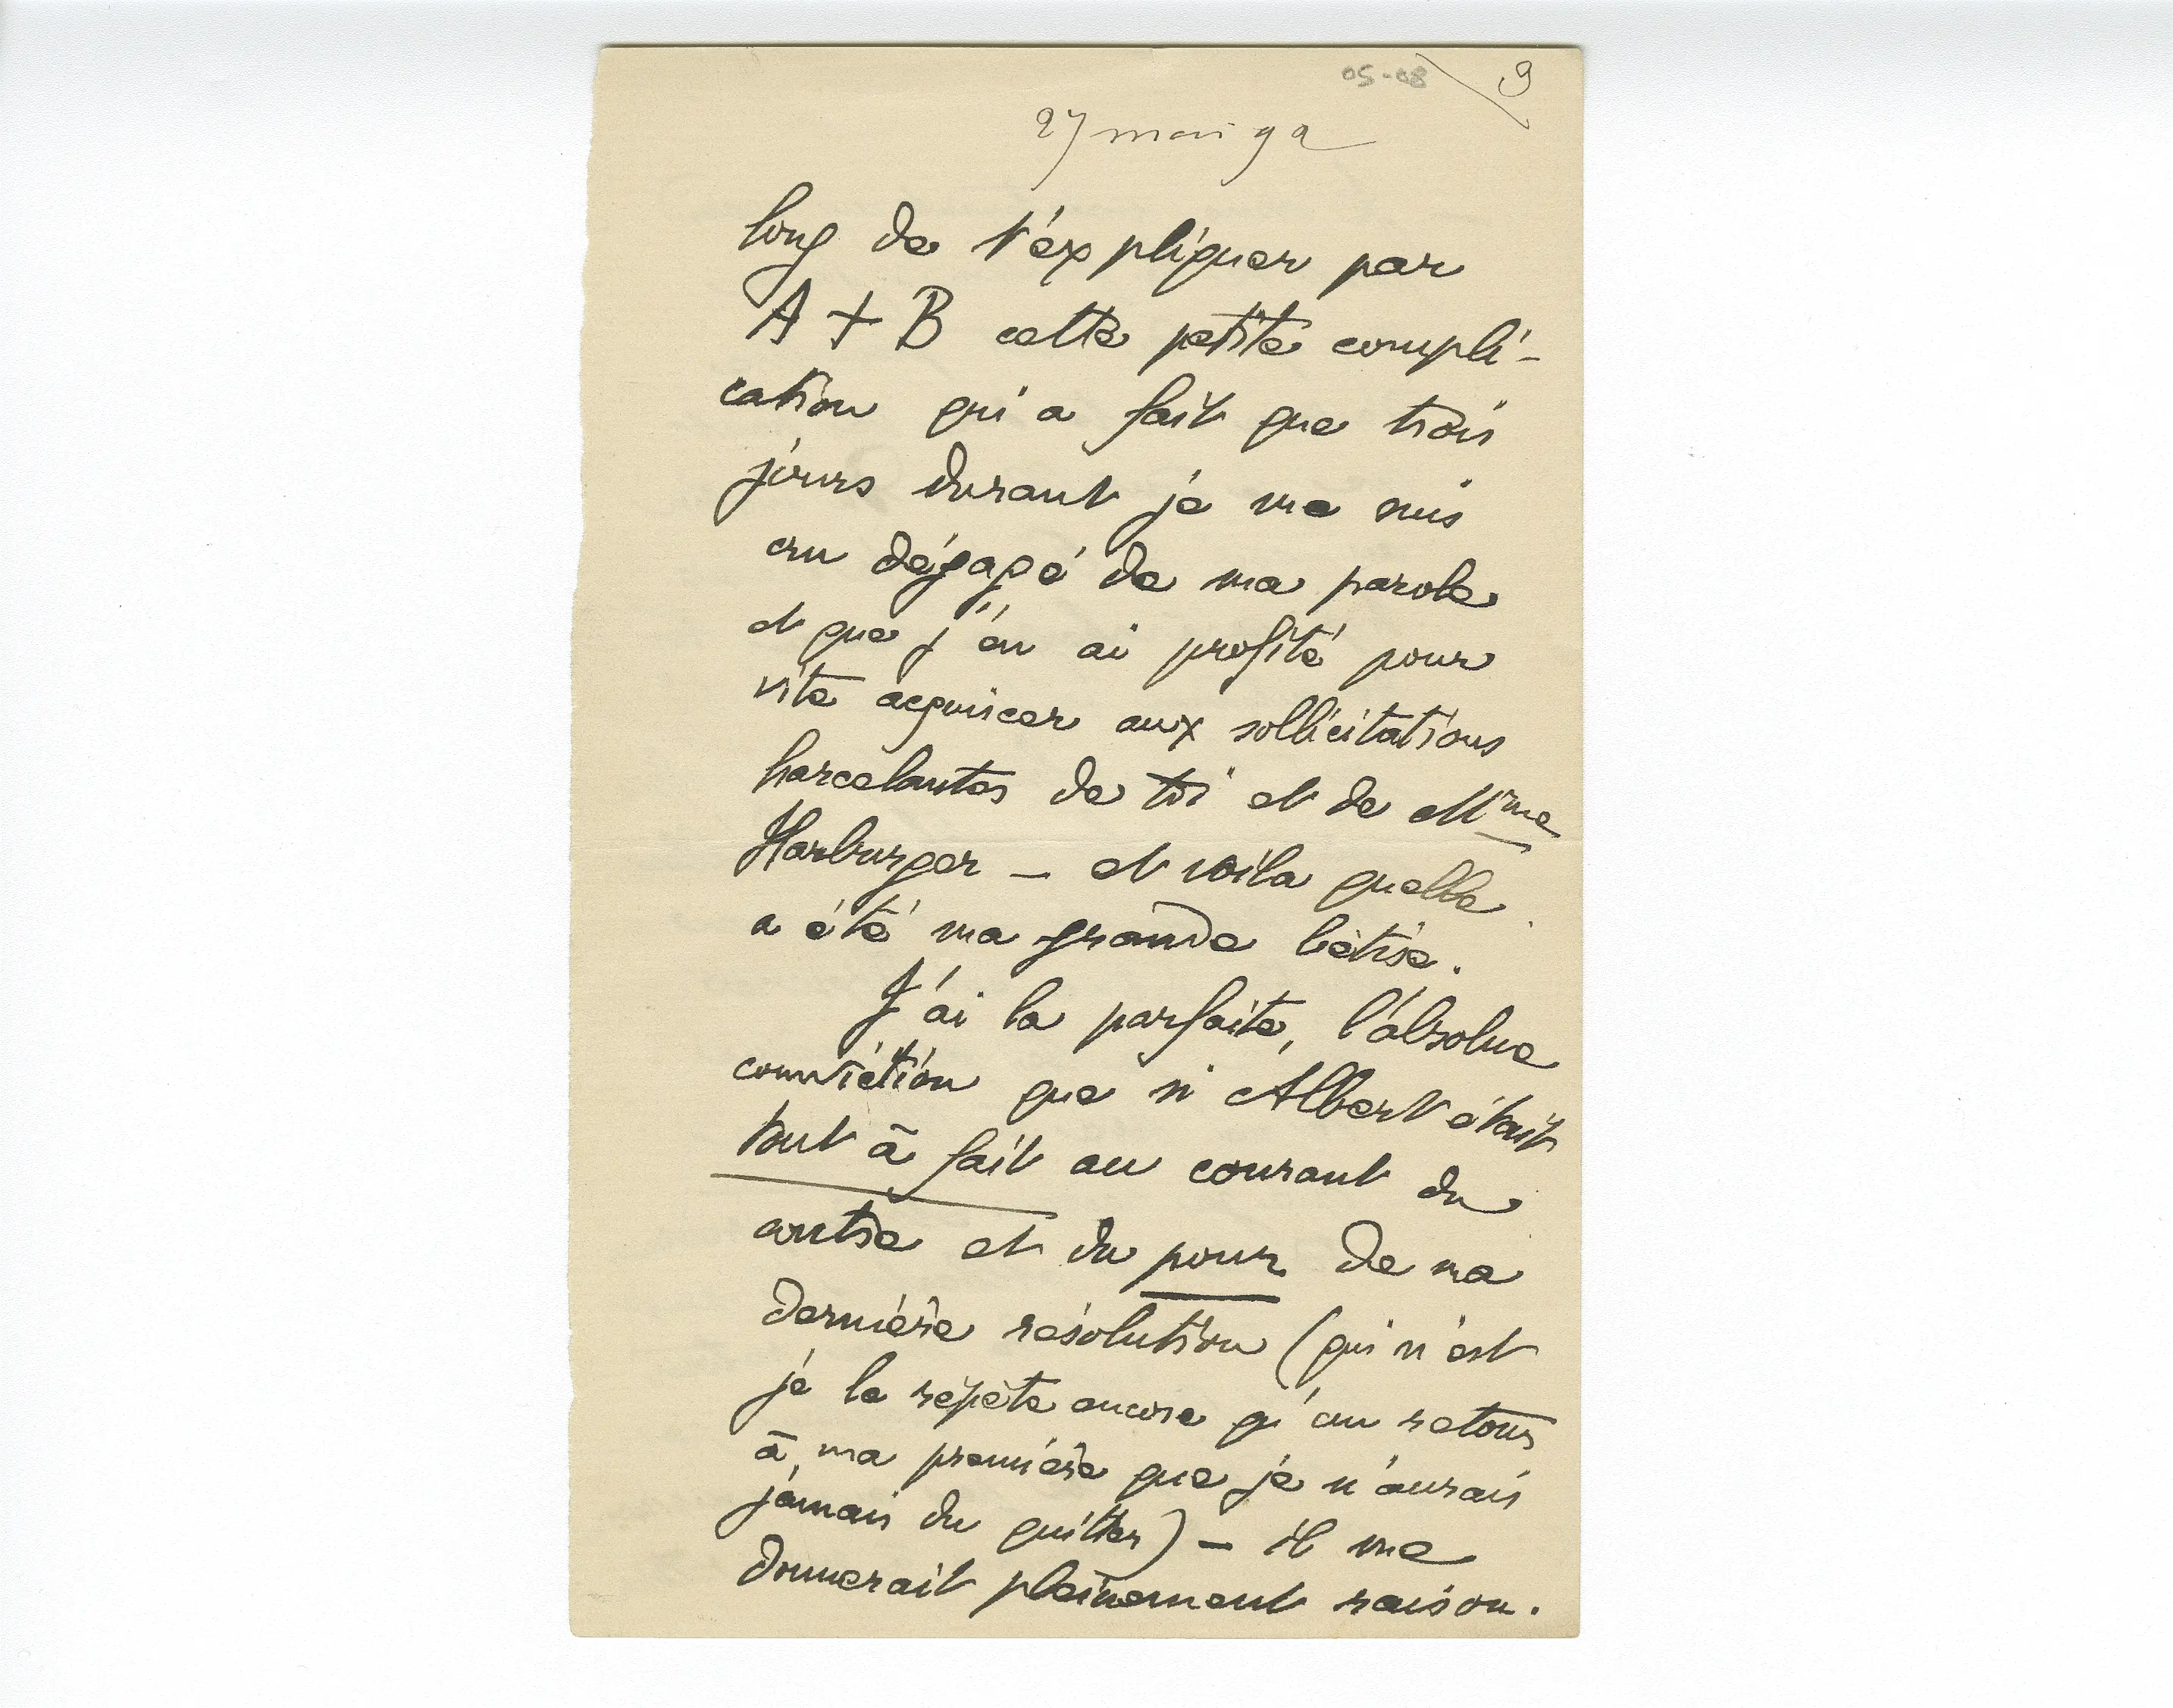 05-08 9
27 mai 92
long de t'expliquer par
A + B cette petite compli-
cation qui a fait que trois
jours durant je me suis
cru dégagé de ma parole
et que j'en ai profité pour
vite acquiscer aux sollicitations
harcelantes de toi et de Mme
Harburger — et voila quelle
a été ma grande bêtise.
J'ai la parfaite, l'absolue
conviction que si Albert était
tout à fait au courant du
contre et du pour de ma
dernière résolution (qui n'est
je le répète encore qu'un retour
à ma première que je n'aurais
jamais du quitter) — il me
donnerait pleinement raison.